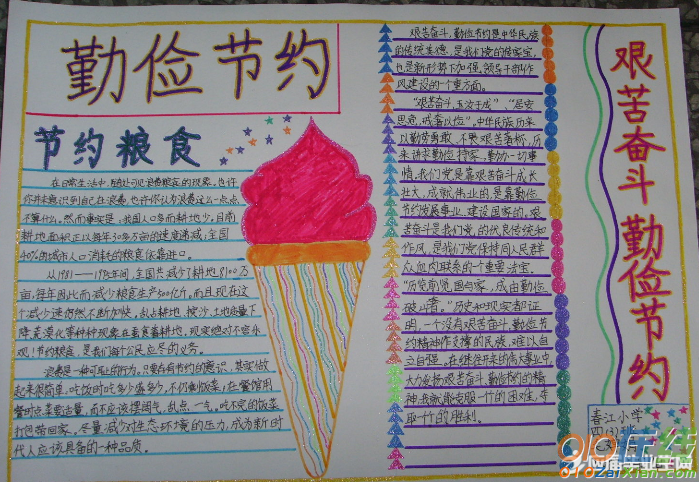 勤俭节约
节约粮食
在日常生活中,随处可见浪费粮食的现象。也许
你并未意识到自己在浪费,也许你认为浪费这么一点点
不算什么。然而事实是:我国人口多而耕地少,目前
耕地面积正以每年30多万亩的速度递减,全国
40%的城市人口消耗的粮食依靠进口。
从1981—1985年间,全国共减少了耕地8100万
亩,每年因此而减少粮食生产500亿斤。而且现在这
个减少速仍然不断加快。乱占耕地、挖沙、土地质量下
降、荒漠化等种种现象在蚕食着耕地。现实绝对不容乐
观!节约粮食,是我们每个公民应尽的义务。
浪费是一种可耻的行为。只要存有节约的意识,其实做
起来很简单:吃饭时吃多少盛多少,不扔剩饭菜;在餐馆用
餐时点菜要适量,而不应该摆阔气,乱点一气。吃不完的饭菜
打包带回家。尽量减少对生态环境的压力,成为新时
代人应该具备的一种品质。
艰苦奋斗,勤俭节约是中华民族
的传统美德,是我们党的传家宝,
也是新形势下加强领导干部作
风建设的一个重方面。
“艰苦奋斗,玉汝于成”、“居安
思危,戒奢以俭”,中华民族历来
以勤劳勇敢、不畏艰苦著称,历
来讲求勤俭持家,勤俭一切事
情。我们党是靠艰苦奋斗成长
壮大,成就伟业的,是靠勤俭
节约发展事业、建设国家的。艰
苦奋斗是我们党的优良传统和
作风,是我们党保持同人民群
众血肉联系的一个重要法宝。
“历览前贤国与家,成由勤俭
破由奢。”历史和现实都证
明,一个没有艰苦奋斗、勤俭节
约精神作支撑的民族,难以自
立自强。在继往开来的伟大事业中,
大力发扬艰苦奋斗、勤俭节约的精
神,我就能克服一个的困难,夺
取一个的胜利。
艰苦奋斗 勤俭节约
春江小学
四(3)班